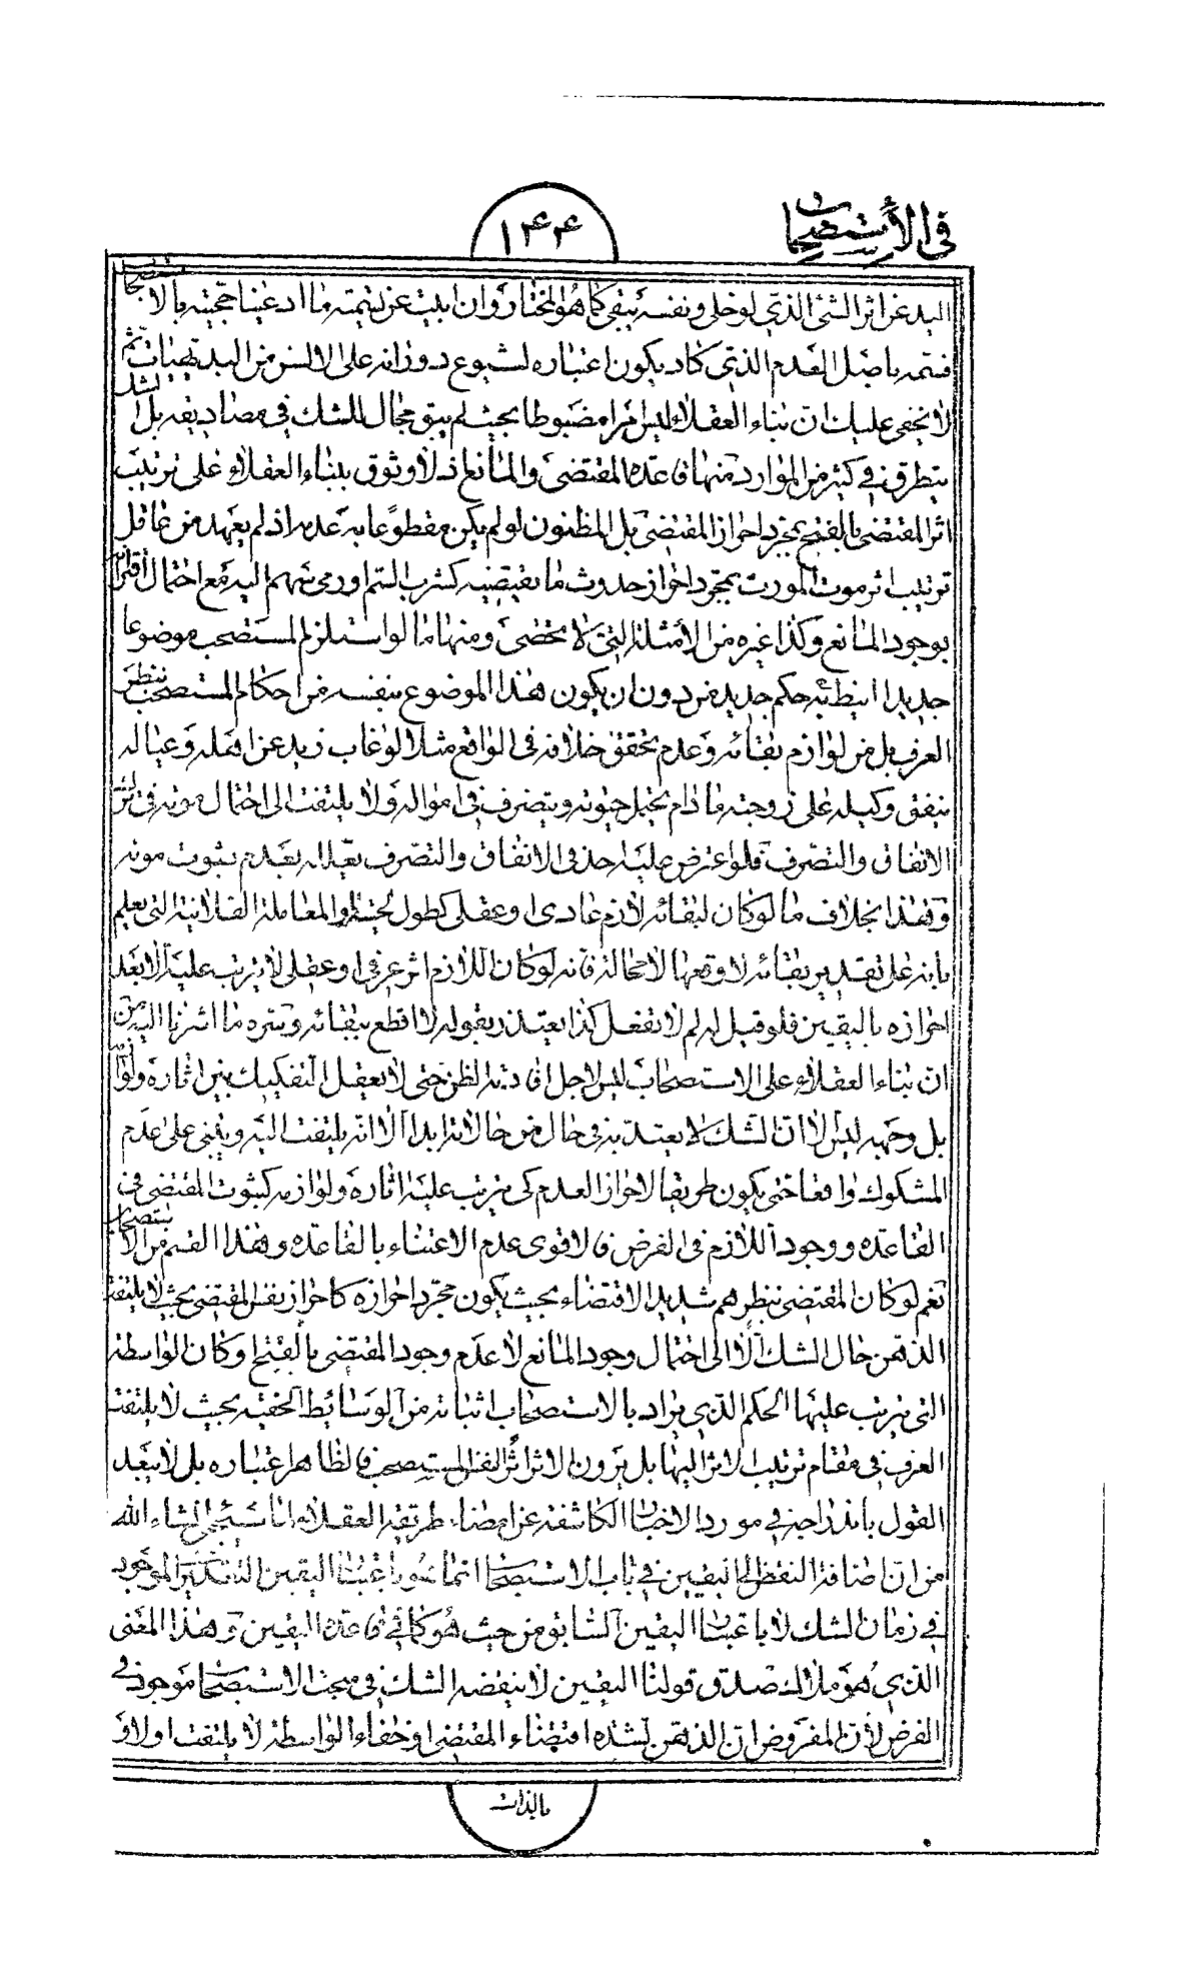 في الأستصحاب
١۴۴
اليد عن اثر الشئ الذي لو خلى ونفسه يبقى كما هو المختار وان ابيت عن تسميته ما ادعينا حجيته بالاستصحاب
فسمه باصل العدم الذي كاد يكون اعتباره لشيوع دورانه على الالسن من البديهيات ثم
لا يخفى عليك ان بناء العقلاء ليس امرا مضبوطا بحيث لم يبق مجال للشك في مصاديقه بل الشك
يتطرق في كثير من الموارد منها قاعدة المقتضي والمانع اذ لا وثوق ببناء العقلاء على ترتيب
اثر المقتضى بالفتح بمجرد احراز المقتضي بل المظنون لو لم يكن مقطوعا به عدمه اذ لم يعهد من عاقل
ترتيب اثر موت المورث بمجرد احراز حدوث ما يقتضيه كشرب السم او رمى سهم اليه مع احتمال اقترانه
بوجود المانع وكذا غيره من الأمثلة التي لا تحصى ومنها ما لو استلزم المستصحب موضوعا
جديدا انيط به حكم جديد من دون ان يكون هذا الموضوع بنفسه من احكام المستصحب بنظر
العرف بل من لوازم بقائه وعدم تحقق خلافه في الواقع مثلا لو غاب زيد عن اهله وعياله
ينفق وكيله على زوجته ما دام يحتمل حيوته ويتصرف في امواله ولا يلتفت الى احتمال موته في ترك
الانفاق والتصرف فلو اعترض عليه احد في الانفاق والتصرف يعلله بعدم ثبوت موته
وهذا بخلاف ما لو كان لبقائه لازم عادى او عقلى كطول لحيته والمعاملة الفلانية التي يعلم
بانه على تقدير بقائه لاوقعها لا محالة فانه لو كان للازم اثر عرفي او عقلى لا يرتب عليه الا بعد
احرازه باليقين فلو قيل له لم لا تفعل كذا يعتذر بقوله لا اقطع ببقائه وسره ما اشرنا اليه من
ان بناء العقلاء على الاستصحاب ليس لاجل افادته الظن حتى لا يعقل التفكيك بين اثاره ولوازمه
بل وجهه ليس الا ان الشك لا يعتد به في حال من حالاته ابدا لا انه يلتفت اليه ويبني على عدم
المشكوك واقعا حتى يكون طريقا لاحراز العدم كى يترتب عليه اثاره ولوازمه كثبوت المقتضى في
القاعدة ووجود اللازم في الفرض فالاقوى عدم الاعتناء بالقاعدة وهذا القسم من الاستصحاب
نعم لو كان المقتضي بنظرهم شديد الاقتضاء بحيث يكون مجرد احرازه كاحراز نفس المقتضى بحيث لا يلتفت
الذهن حال الشك الا الى احتمال وجود المانع لا عدم وجود المقتضى بالفتح او كان الواسطة
التى يترتب عليها الحكم الذي يراد بالاستصحاب اثباته من الوسائط الخفية بحيث لا يلتفت
العرف في مقام ترتيب الاثر اليها بل يرون الاثر اثرا لنفس المستصحب فالظاهر اعتباره بل لا يبعد
القول باندراجه في مورد الاخبار الكاشفة عن امضاء طريقة العقلاء لما سيجئ انشاء الله
من ان اضافة النقض الى اليقين في باب الاستصحاب انما هو باعتبار اليقين التقديرى الموجود
في زمان الشك لا باعتبار اليقين السابق من حيث هو كما في قاعدة اليقين وهذا المعنى
الذي هو ملاك صدق قولنا اليقين لا ينقضه الشك في مبحث الاستصحاب موجود في
الفرض لأن المفروض ان الذهن لشدة اقتضاء المقتضى او خفاء الواسطة لا يلتفت اولا و
بالذات